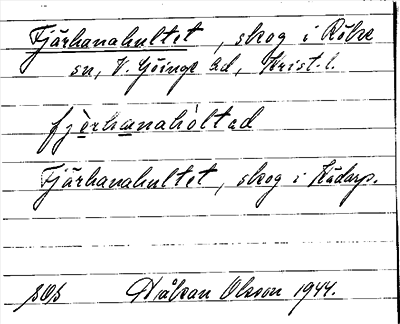 Fjärhanahultet, skog i Röke
sn, V. Göinge hd, Krist. l.
fjèrhanahòltad
Fjärhanahultet, skog i Kädarp.
SOS Håkan Olsson 1944.